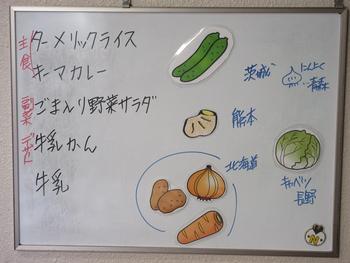 主食
ターメリックライス
キーマカレー
副菜
ごま入り野菜サラダ
デザート
牛乳かん
牛乳
茨城
にんにく
青森
熊本
北海道
キャベツ
長野